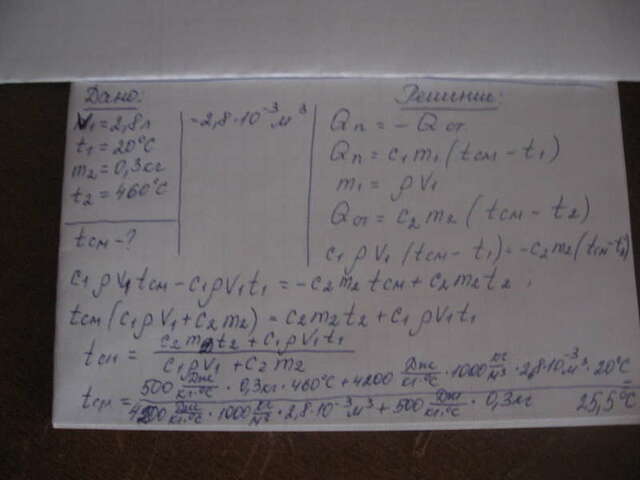 Дано:
V₁ = 2,8 л
t₁ = 20°C
m₂ = 0,3 кг
t₂ = 460°C
tсм - ?
= 2,8·10⁻³ м³
Решение:
Qп = - Qот
Qп = c₁m₁(tсм - t₁)
m₁ = ρV₁
Qот = c₂m₂(tсм - t₂)
c₁ρV₁(tсм - t₁) = -c₂m₂(tсм - t₂)
c₁ρV₁tсм - c₁ρV₁t₁ = -c₂m₂tсм + c₂m₂t₂
tсм(c₁ρV₁ + c₂m₂) = c₂m₂t₂ + c₁ρV₁t₁
tсм = (c₂m₂t₂ + c₁ρV₁t₁) / (c₁ρV₁ + c₂m₂)
tсм = (500 Дж/кг·°C · 0,3 кг · 460°C + 4200 Дж/кг·°C · 1000 кг/м³ · 2,8·10⁻³ м³ · 20°C) / (4200 Дж/кг·°C · 1000 кг/м³ · 2,8·10⁻³ м³ + 500 Дж/кг·°C · 0,3 кг) = 25,5°C